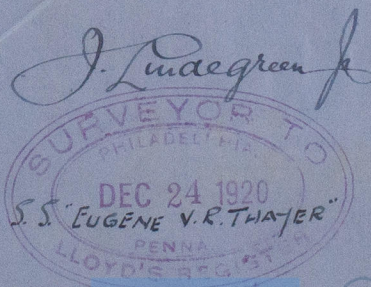 J. Lindegreen Jr
SURVEYOR TO
PHILADELPHIA
DEC 24 1920
S.S. "EUGENE V.R. THAYER"
PENNA
LLOYD'S REGISTER